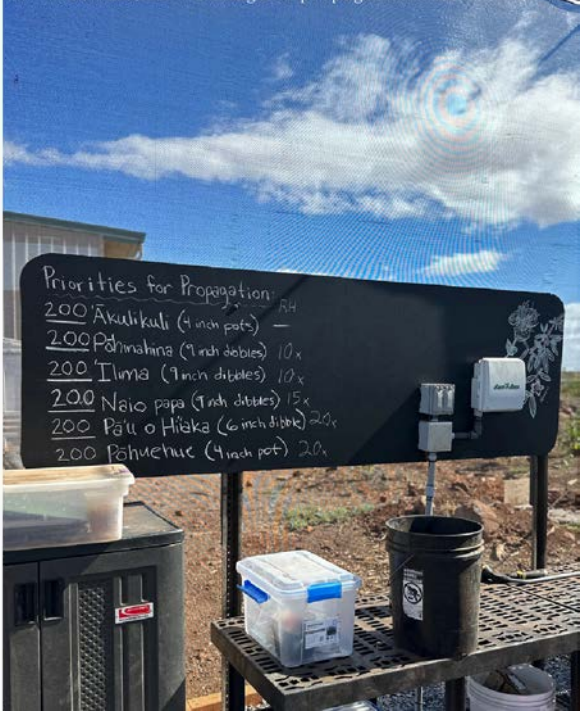 Priorities for Propagation:
RH
200 'Ākulikuli (4 inch pots) —
200 Pōhinahina (9 inch dibbles) 10x
200 'Ilima (9 inch dibbles) 10x
200 Naio papa (9 inch dibbles) 15x
200 Pā'ū o Hi'iaka (6 inch dibble) 20x
200 Pōhuehue (4 inch pot) 20x